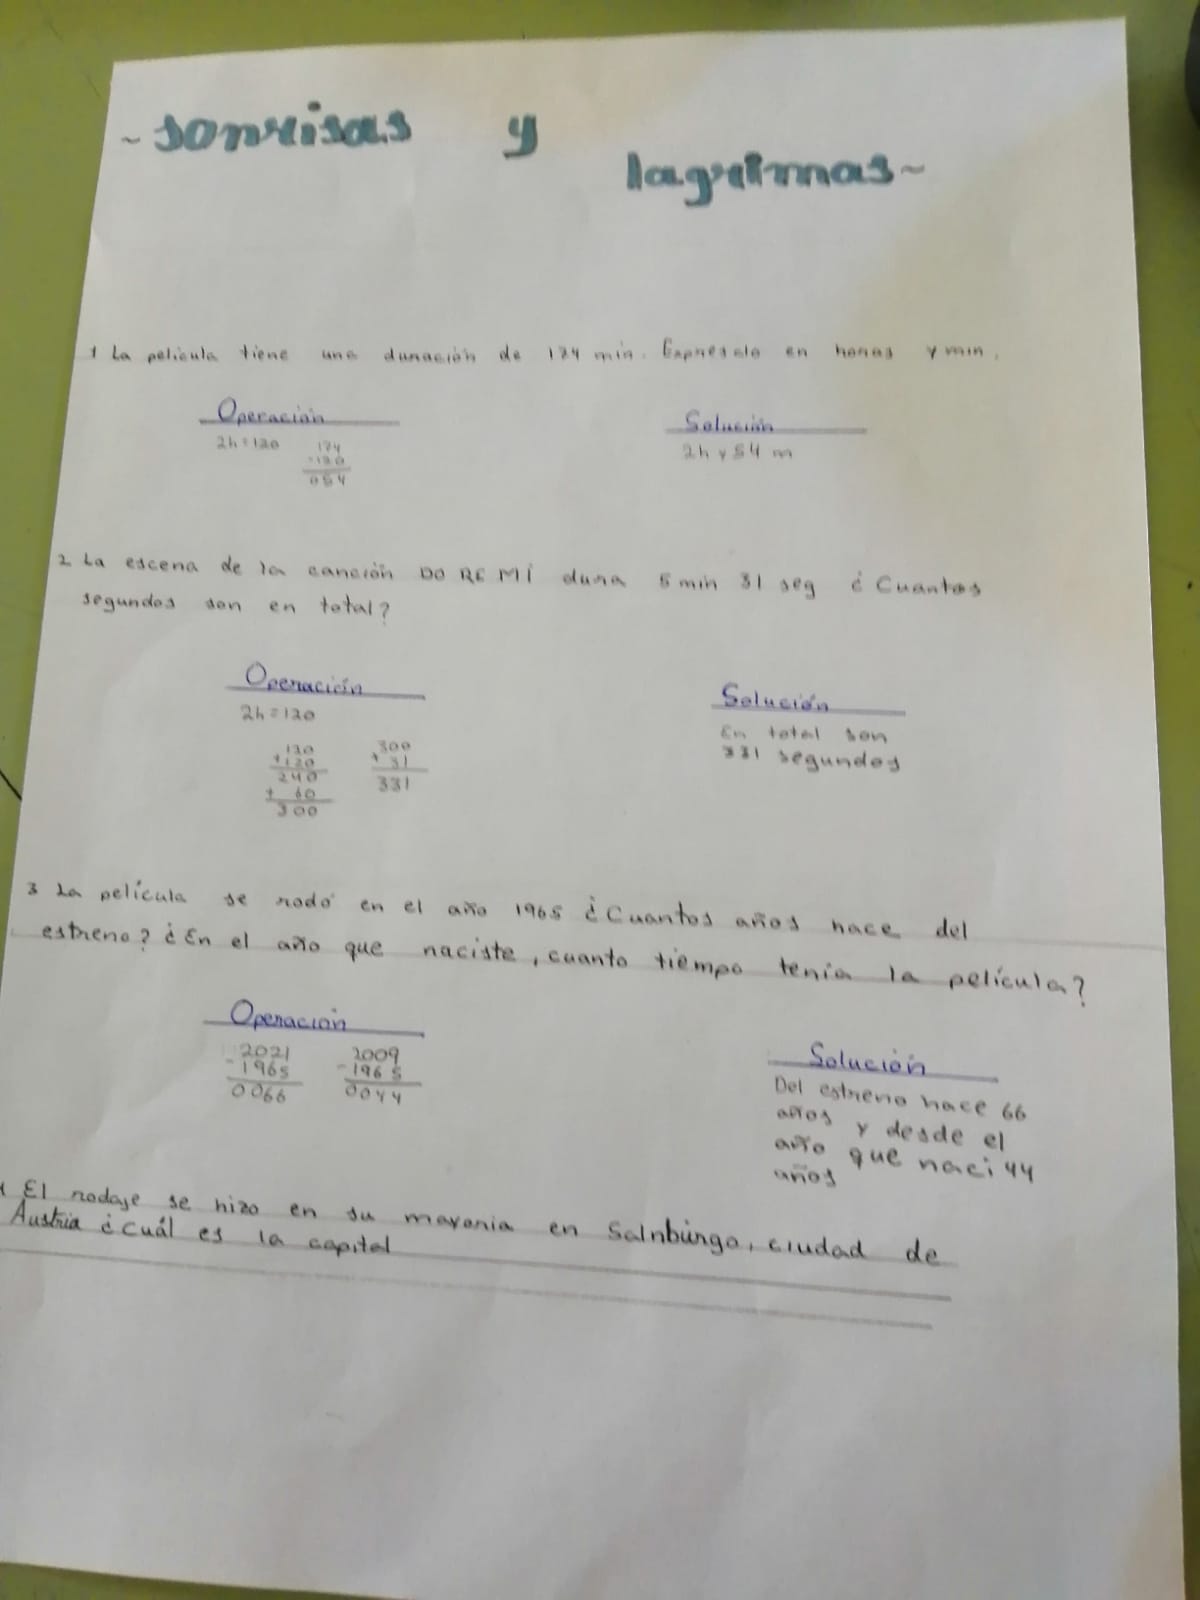 ~sonrisas y
lagrimas~
1 La película tiene una duración de 174 min. Exprésalo en horas y min.
Operación
Solución
2h=120 174
-120
054
2h y 54 m
2 La escena de la canción DO RE MÍ dura 5 min 31 seg ¿Cuantos
segundos son en total?
Operación
Solución
2h=120
120
+120
240
+ 60
300
300
+ 31
331
En total son
331 segundos
3 La película se rodó en el año 1965 ¿Cuantos años hace del
estreno? ¿En el año que naciste, cuanto tiempo tenia la película?
Operación
Solución
2021
-1965
0066
2009
-1965
0044
Del estreno hace 66
años y desde el
año que naci 44
años
4 El rodaje se hizo en su mayoria en Salnburgo, ciudad de
Austria ¿cuál es la capital